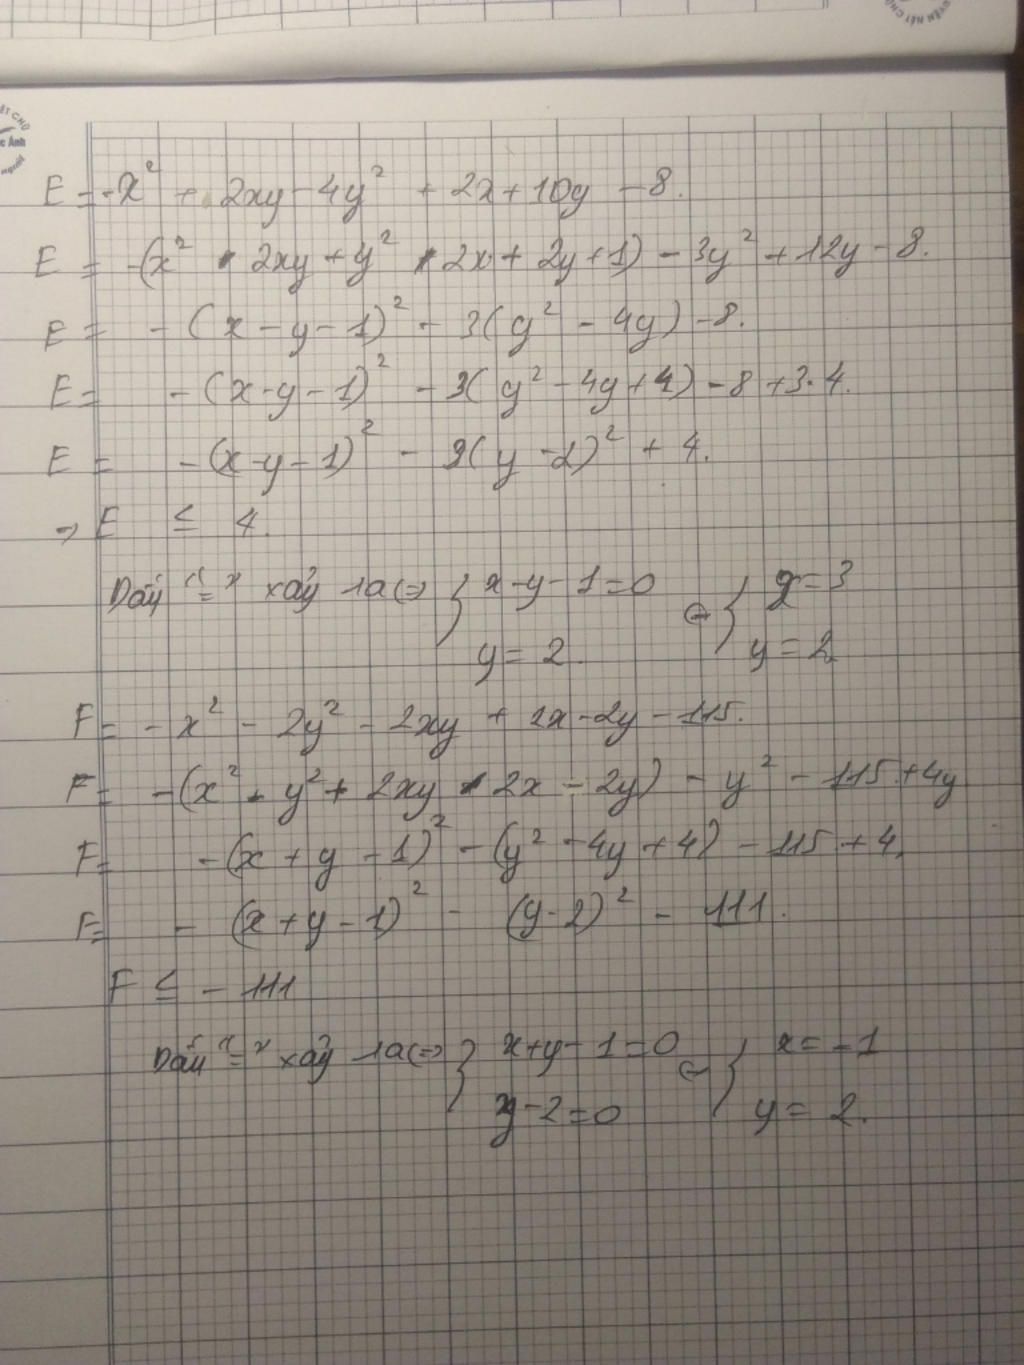 E = -x² + 2xy - 4y² + 2x + 10y - 8.
E = -(x² - 2xy + y² - 2x + 2y + 1) - 3y² + 12y - 8.
E = - (x - y - 1)² - 3(y² - 4y) - 8.
E = - (x - y - 1)² - 3(y² - 4y + 4) - 8 + 3.4.
E = - (x - y - 1)² - 3(y - 2)² + 4.
→ E ≤ 4.
Dấu "=" xảy ra <=> { x - y - 1 = 0 <=> { x = 3
y = 2. y = 2
F = - x² - 2y² - 2xy + 2x - 2y - 115.
F = -(x² + y² + 2xy - 2x - 2y) - y² - 115 + 4y
F = - (x + y - 1)² - (y² - 4y + 4) - 115 + 4.
F = - (x + y - 1)² - (y - 2)² - 111.
F ≤ - 111
Dấu "=" xảy ra <=> { x + y - 1 = 0 <=> { x = -1
y - 2 = 0 y = 2.